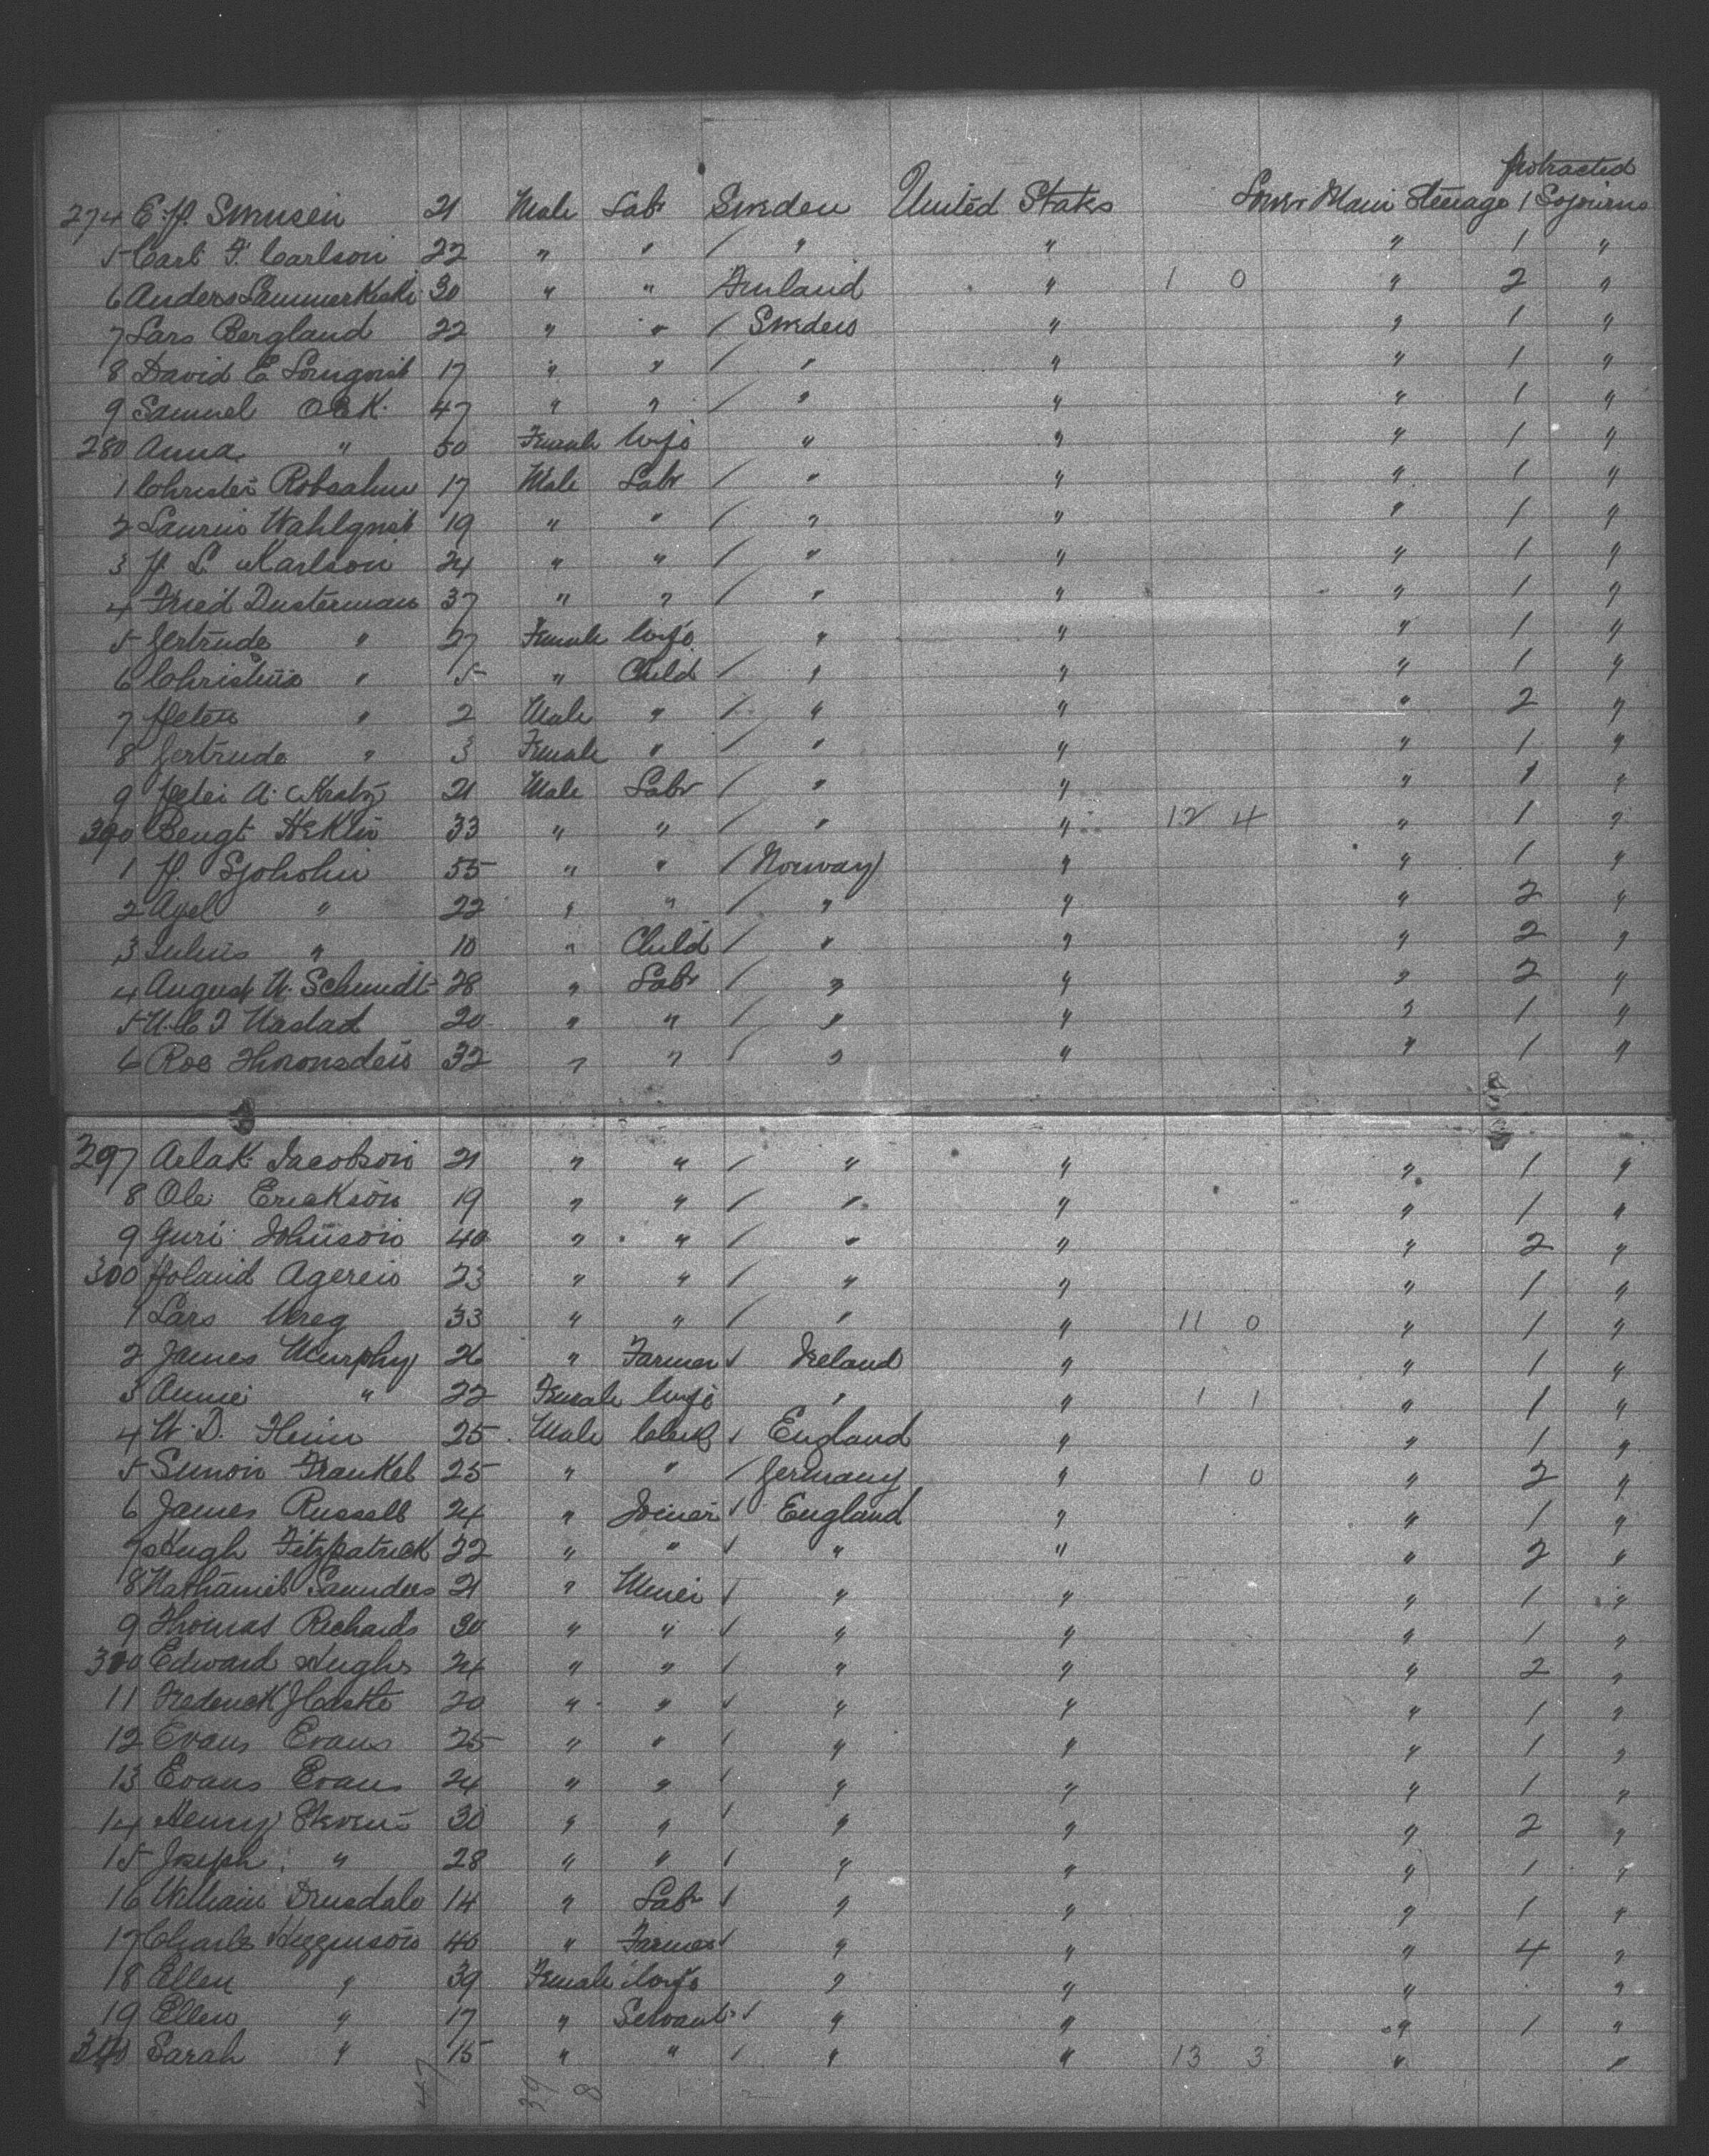 Protracted
274 E. P. Swensen 21 Male Labr Sweden United States Lower Main Steerage 1 Sojourns
5 Carl F. Carlson 22 " " / " " " 1 "
6 Anders 30 " " Finland " 1 0 " 2 "
7 Lars Bergland 22 " " / Sweden " " 1 "
8 David E 17 " " / " " " 1 "
9 Samuel Oak 47 " " / " " " 1 "
280 Anna " 50 Female Wife " " " 1 "
1 Robsahm 17 Male Labr / " " " 1 "
2 Wahlqvist 19 " " / " " " 1 "
3 P. L. Karlson 24 " " / " " " 1 "
4 Fried Dusterman 37 " " / " " " 1 "
5 Gertrude " 27 Female Wife " " " 1 "
6 Christine " 5 " Child / " " " 1 "
7 Peter " 2 Male " / " " " 2 "
8 Gertrude " 3 Female " / " " " 1 "
9 Peter A. 21 Male Labr / " " " 1 "
390 Bengt 33 " " / " " 12 4 " 1 "
1 P. 55 " " / Norway " " 1 "
2 Axel " 22 " " / " " " 2 "
3 Julius " 10 " Child / " " " 2 "
4 August W. Schmidt 28 " Labr / " " " 2 "
5 20 " " / " " " 1 "
6 32 " " / " " " 1 "
297 Aslak Jacobson 21 " " / " " " 1 "
8 Ole Erickson 19 " " / " " " 1 "
9 Guri Johnson 40 " " / " " " 2 "
300 23 " " / " " " 1 "
1 Lars 33 " " / " " 11 0 " 1 "
2 James Murphy 26 " Farmer √ Ireland " " 1 "
3 Annie " 22 Female Wife " " 1 1 " 1 "
4 W. D. 25 Male Clerk √ England " " 1 "
5 Simon Frankel 25 " " / Germany " 1 0 " 2 "
6 James Russell 24 " Joiner √ England " " 1 "
7 Hugh Fitzpatrick 22 " " √ " " " 2 "
8 Nathaniel Saunders 21 " Miner √ " " " 1 "
9 Thomas Richards 30 " " √ " " " 1 "
310 Edward Hughes 24 " " / " " " 2 "
11 Frederick J 20 " " √ " " " 1 "
12 Evans Evans 25 " " / " " " 1 "
13 Evans Evans 24 " " / " " " 1 "
14 Henry Steven 30 " " / " " " 2 "
15 Joseph " 28 " " / " " " 1 "
16 William 14 " Labr √ " " " 1 "
17 Charles Higginson 40 " Farmer √ " " " 4 "
18 Ellen " 39 Female Wife " " " "
19 Ellen " 17 " Servant √ " " " 1 "
Sarah " 15 " " / " " 13 3 " "
47 39 8